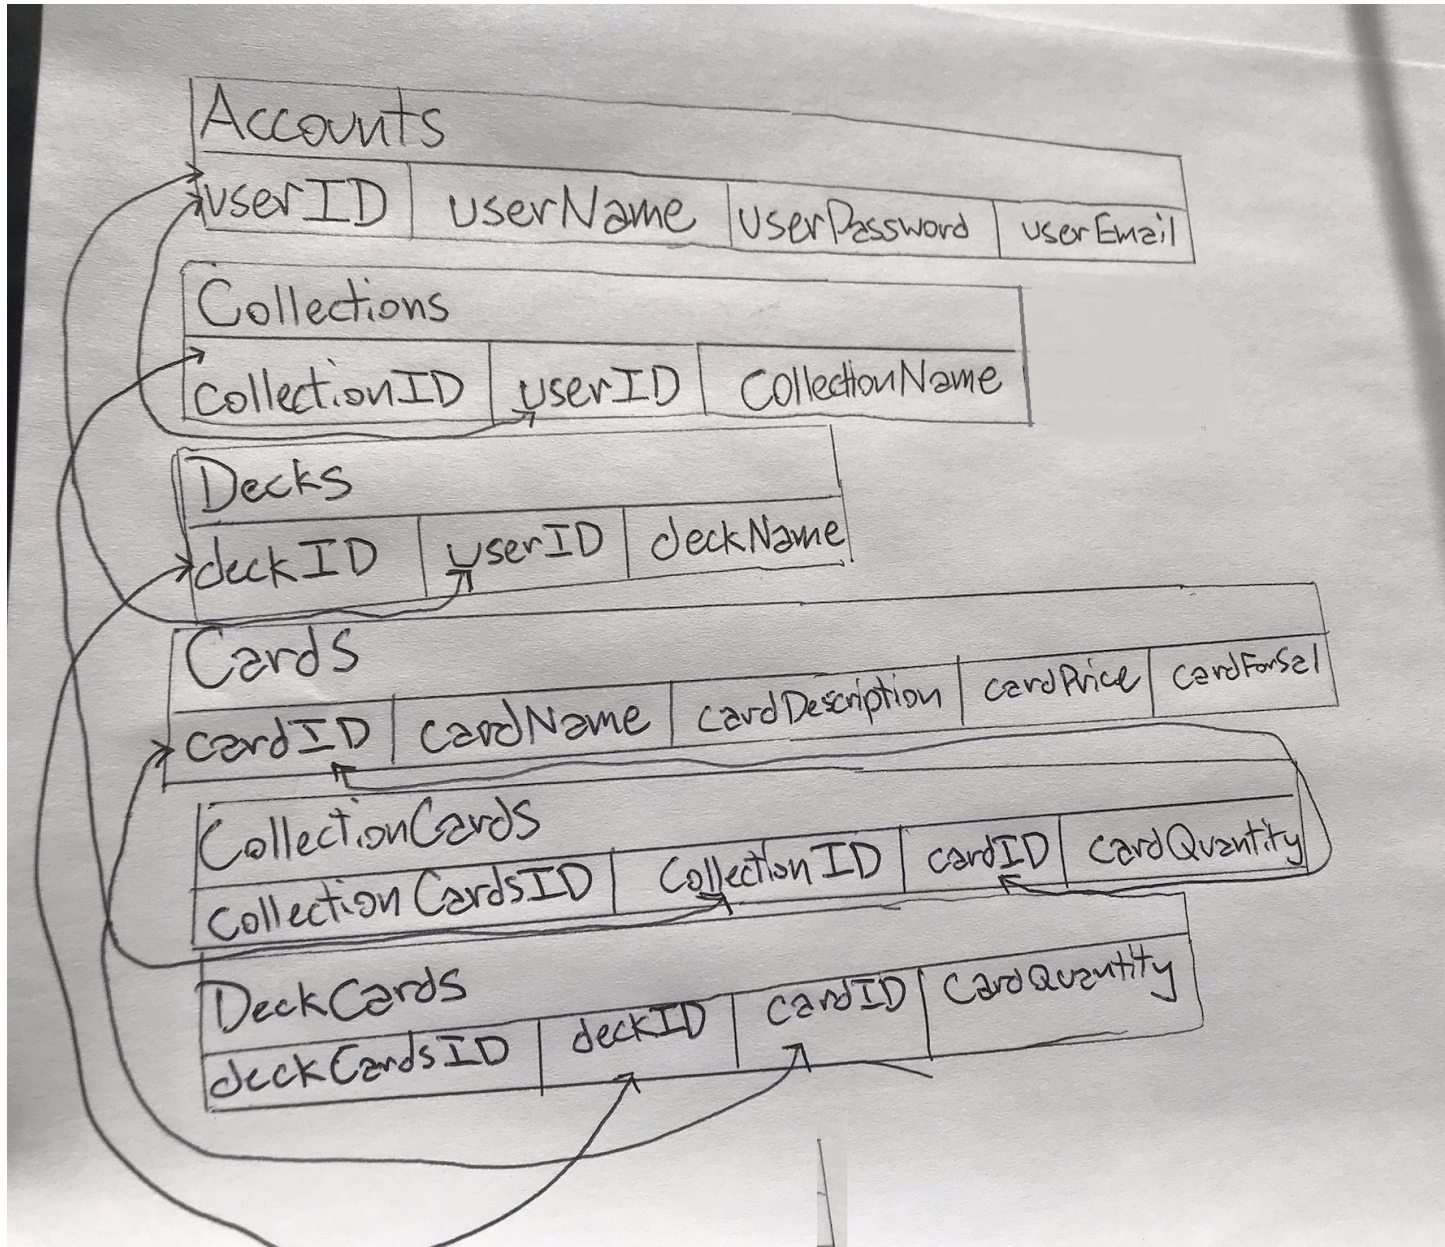 Accounts
userID userName userPassword userEmail
Collections
collectionID userID collectionName
Decks
deckID userID deckName
Cards
cardID cardName cardDescription cardPrice cardForSal
CollectionCards
collectionCardsID collectionID cardID cardQuantity
DeckCards
deckCardsID deckID cardID cardQuantity